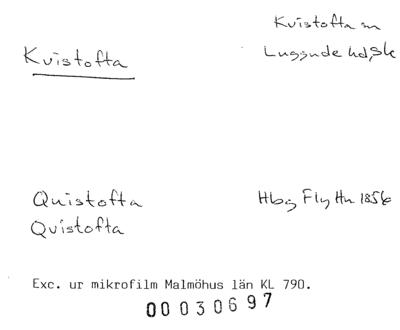 Kvistofta
Kvistofta sn
Luggude hd, Sk
Quistofta
Qvistofta
Hbg Fly Hu 1856
Exc. ur mikrofilm Malmöhus län KL 790.
00030697